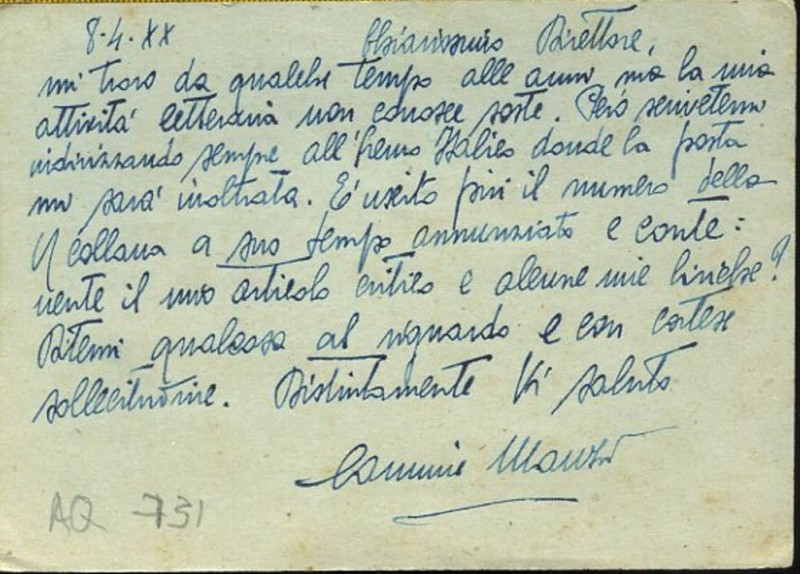 8.4.XX Chiarissimo Direttore,
mi trovo da qualche tempo alle armi ma la mia
attività letteraria non conosce soste. Però scrivetemi
indirizzando sempre all' Italico donde la posta
mi sarà inoltrata. E' uscito più il numero della
collana a suo tempo annunziato e conte=
nente il mio articolo critico e alcune mie liriche?
Ditemi qualcosa al riguardo e con cortese
sollecitudine. Distintamente Vi saluto
AQ 731